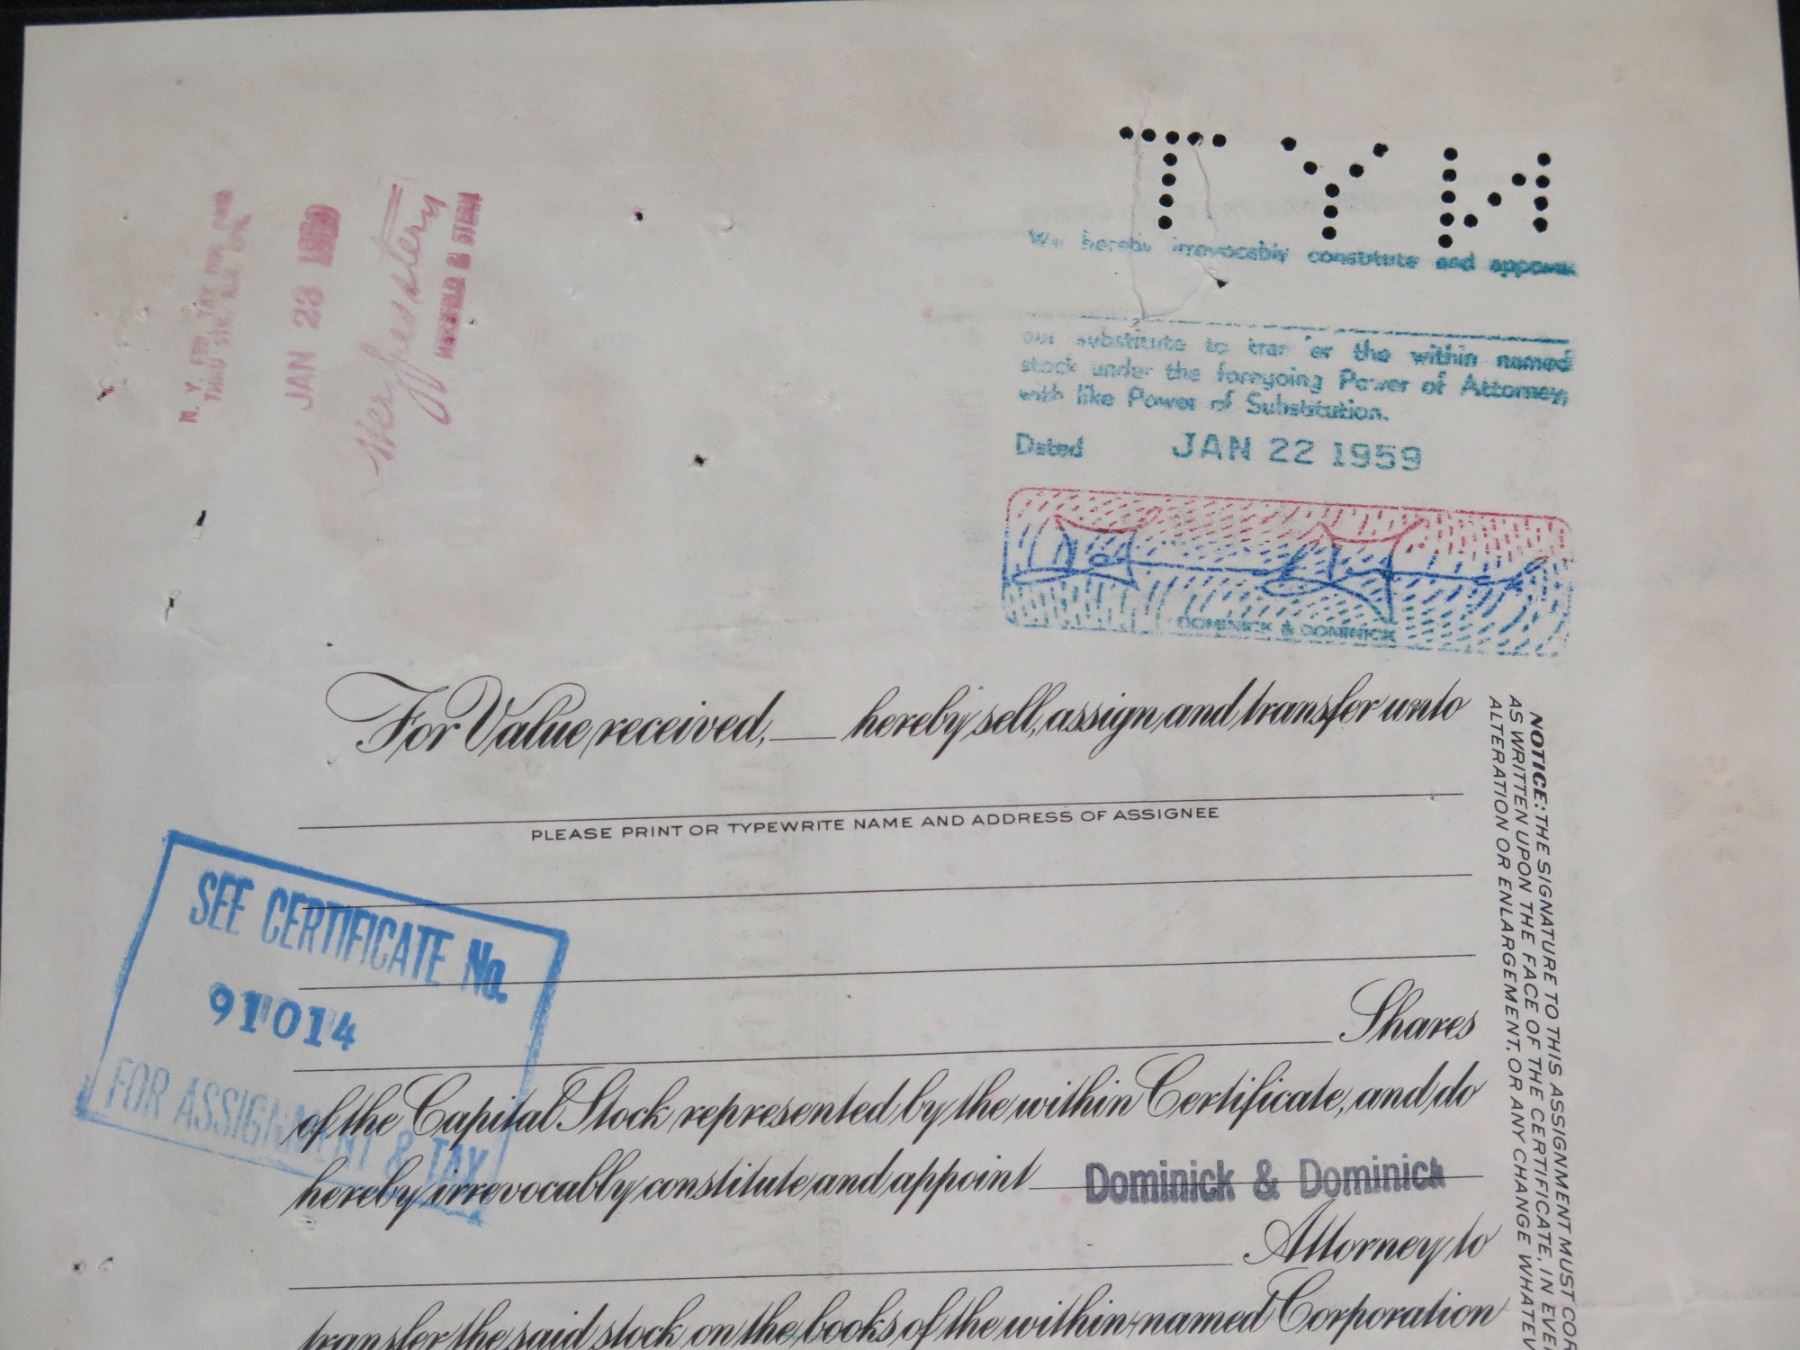 TYN
We hereby irrevocably constitute and appoint
our substitute to transfer the within named
stock under the foregoing Power of Attorney
with like Power of Substitution.
Dated JAN 22 1959
DOMINICK & DOMINICK
N. Y. FED. TAX
THRU STK.
JAN 23 1959
& STERN
For Value received, hereby sell, assign and transfer unto
PLEASE PRINT OR TYPEWRITE NAME AND ADDRESS OF ASSIGNEE
SEE CERTIFICATE No.
91014
FOR ASSIGNMENT & TAX
Shares
of the Capital Stock represented by the within Certificate, and do
hereby irrevocably constitute and appoint Dominick & Dominick
Attorney to
transfer the said stock on the books of the within-named Corporation
NOTICE: THE SIGNATURE TO THIS ASSIGNMENT MUST COR
AS WRITTEN UPON THE FACE OF THE CERTIFICATE, IN EVE
ALTERATION OR ENLARGEMENT, OR ANY CHANGE WHATEV